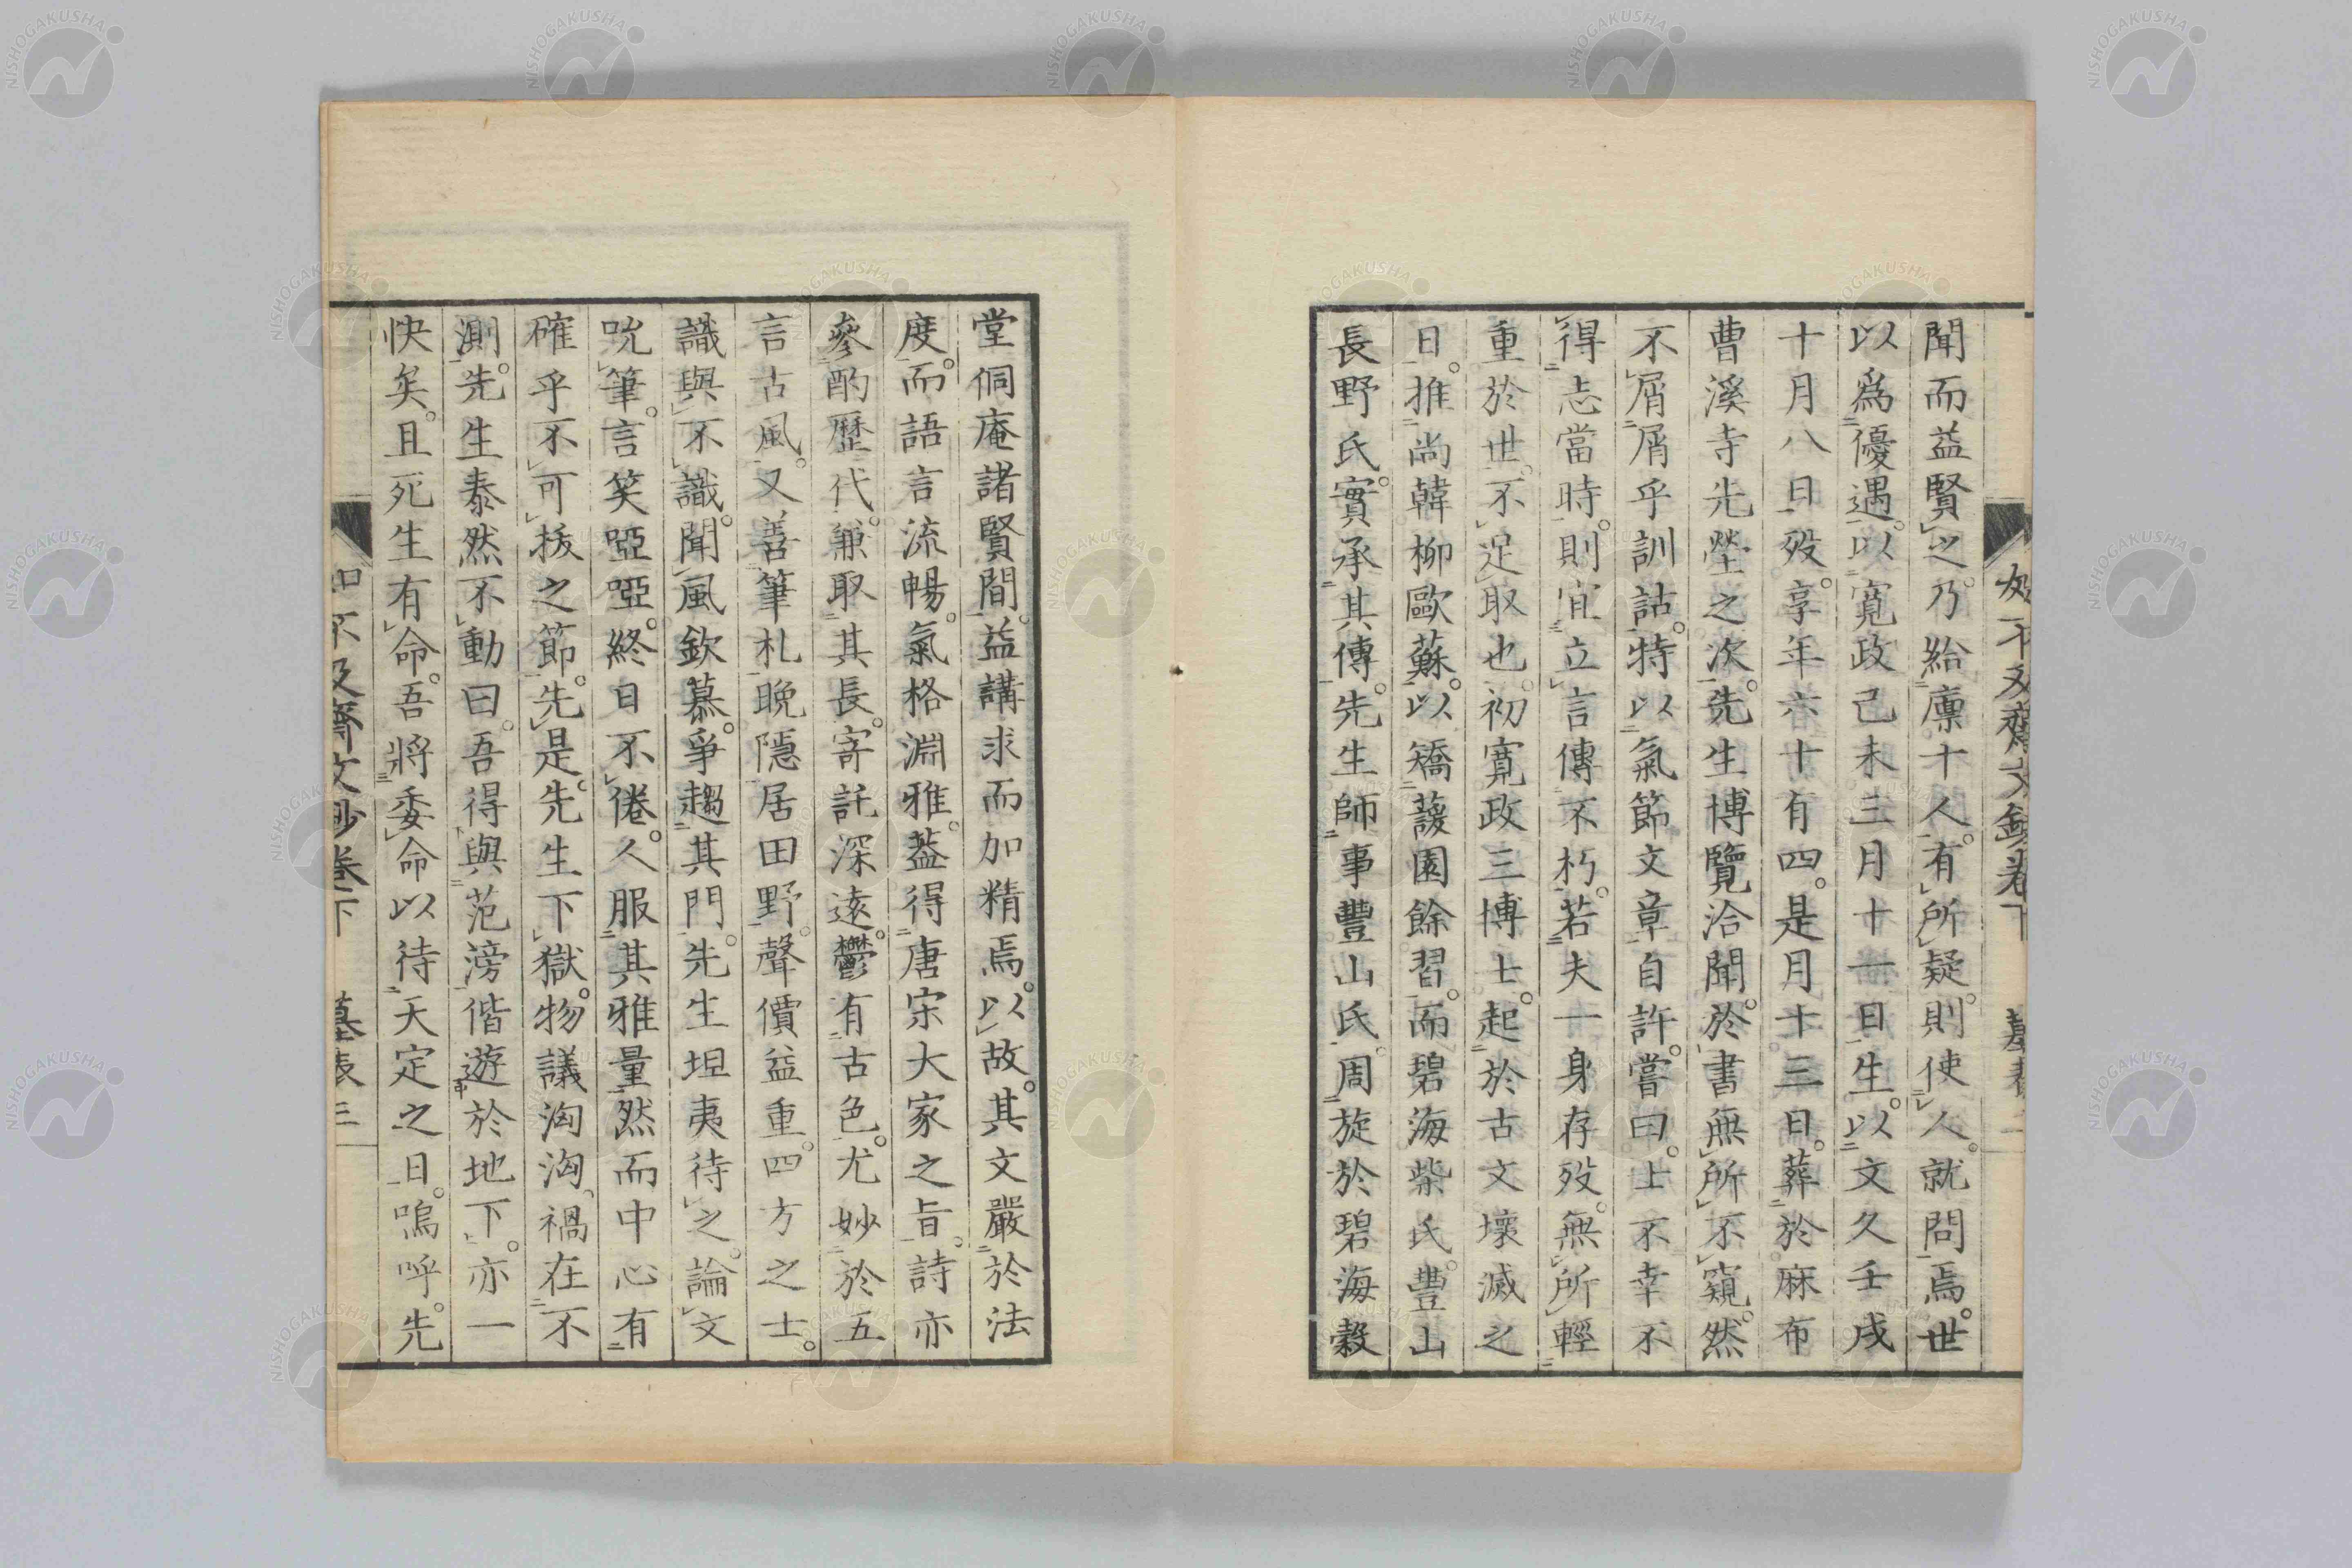 聞而益賢之。乃給廩十人。有所疑。則使人。就問焉。世
以為優遇。以寛政己未三月十一日生。以文久壬戌
十月八日歿。享年六十有四。是月十三日。葬於麻布
曹溪寺先塋之次。先生博覽洽聞。於書無所不窺。然
不屑屑乎訓詁。特以氣節文章自許。嘗曰。士不幸不
得志當時。則宜立言傳不朽。若夫一身存歿。無所輕
重於世。不足取也。初寛政三博士。起於古文壞滅之
日。推尚韓柳歐蘇。以矯蘐園餘習。而碧海柴氏。豐山
長野氏。實承其傳。先生師事豐山氏。周旋於碧海穀
堂侗庵諸賢間。益講求而加精焉。以故。其文嚴於法
度。而語言流暢。氣格淵雅。葢得唐宋大家之旨。詩亦
參酌歷代。兼取其長。寄託深遠。鬱有古色。尤妙於五
言古風。又善筆札。晩隱居田野。聲價益重。四方之士。
識與不識。聞風欽慕。爭趨其門。先生坦夷待之。論文
吮筆。言笑啞啞。終日不倦。人服其雅量。然而中心有
確乎不可拔之節。先是。先生下獄。物議洶洶。禍在不
測。先生泰然不動曰。吾得與范滂偕遊於地下。亦一
快矣。且死生有命。吾將委命以待天定之日。嗚呼。先
如不及齋文鈔卷下 墓表 二
如不及齋文鈔卷下 墓表 三
NISHOGAKUSHA